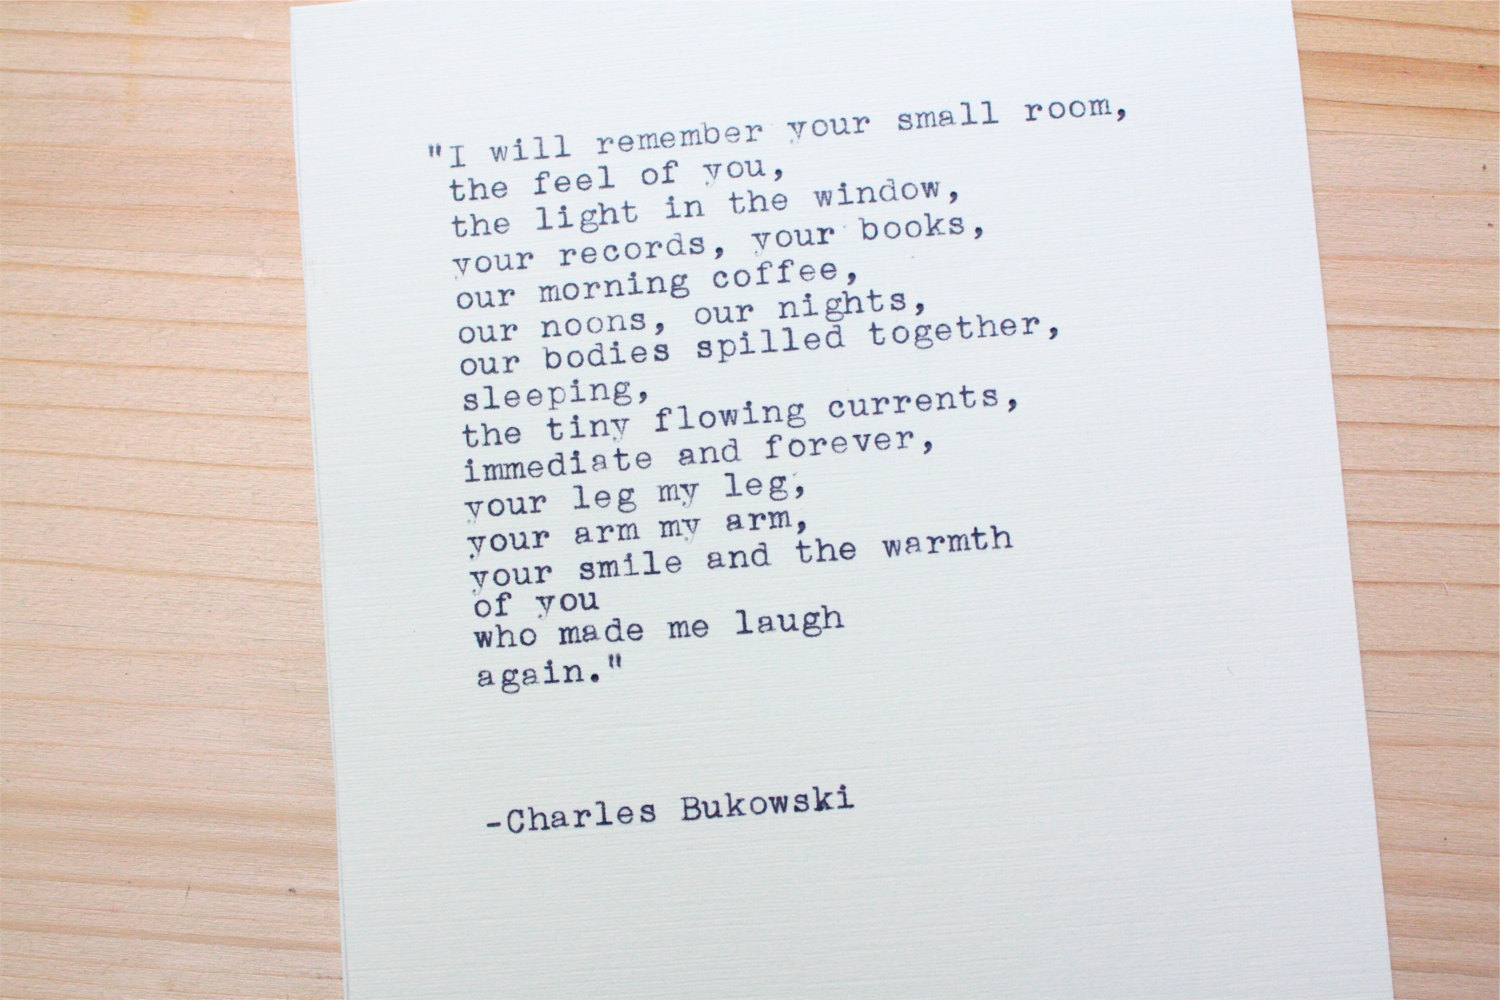 "I will remember your small room,
the feel of you,
the light in the window,
your records, your books,
our morning coffee,
our noons, our nights,
our bodies spilled together,
sleeping,
the tiny flowing currents,
immediate and forever,
your leg my leg,
your arm my arm,
your smile and the warmth
of you
who made me laugh
again."
-Charles Bukowski